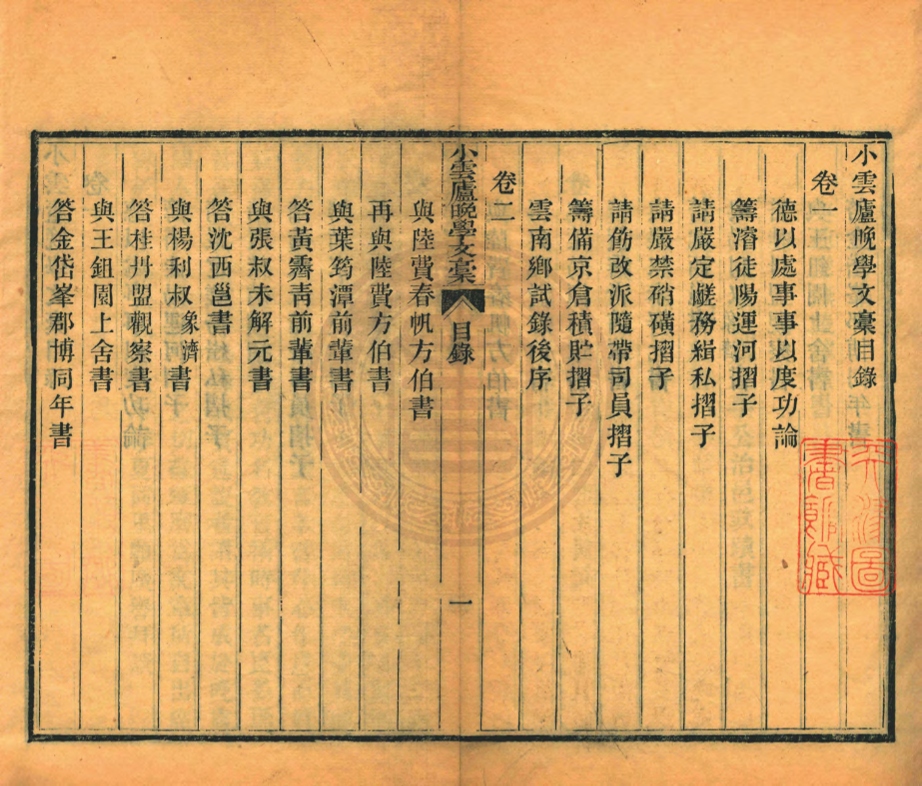 小雲廬晚學文稾目錄
卷一
德以處事事以度功論
籌濬徒陽運河摺子
請嚴定鹺務緝私摺子
請嚴禁硝磺摺子
請飭改派隨帶司員摺子
籌備京倉積貯摺子
雲南鄉試錄後序
卷二
小雲廬晚學文稾
目錄
一
與陸費春帆方伯書
再與陸費方伯書
與葉筠潭前輩書
答黃霽青前輩書
與張叔未解元書
答沈西邕書
與楊利叔象濟書
答桂丹盟觀察書
與王鉏園上舍書
答金岱峯郡博同年書
天津圖
書館藏